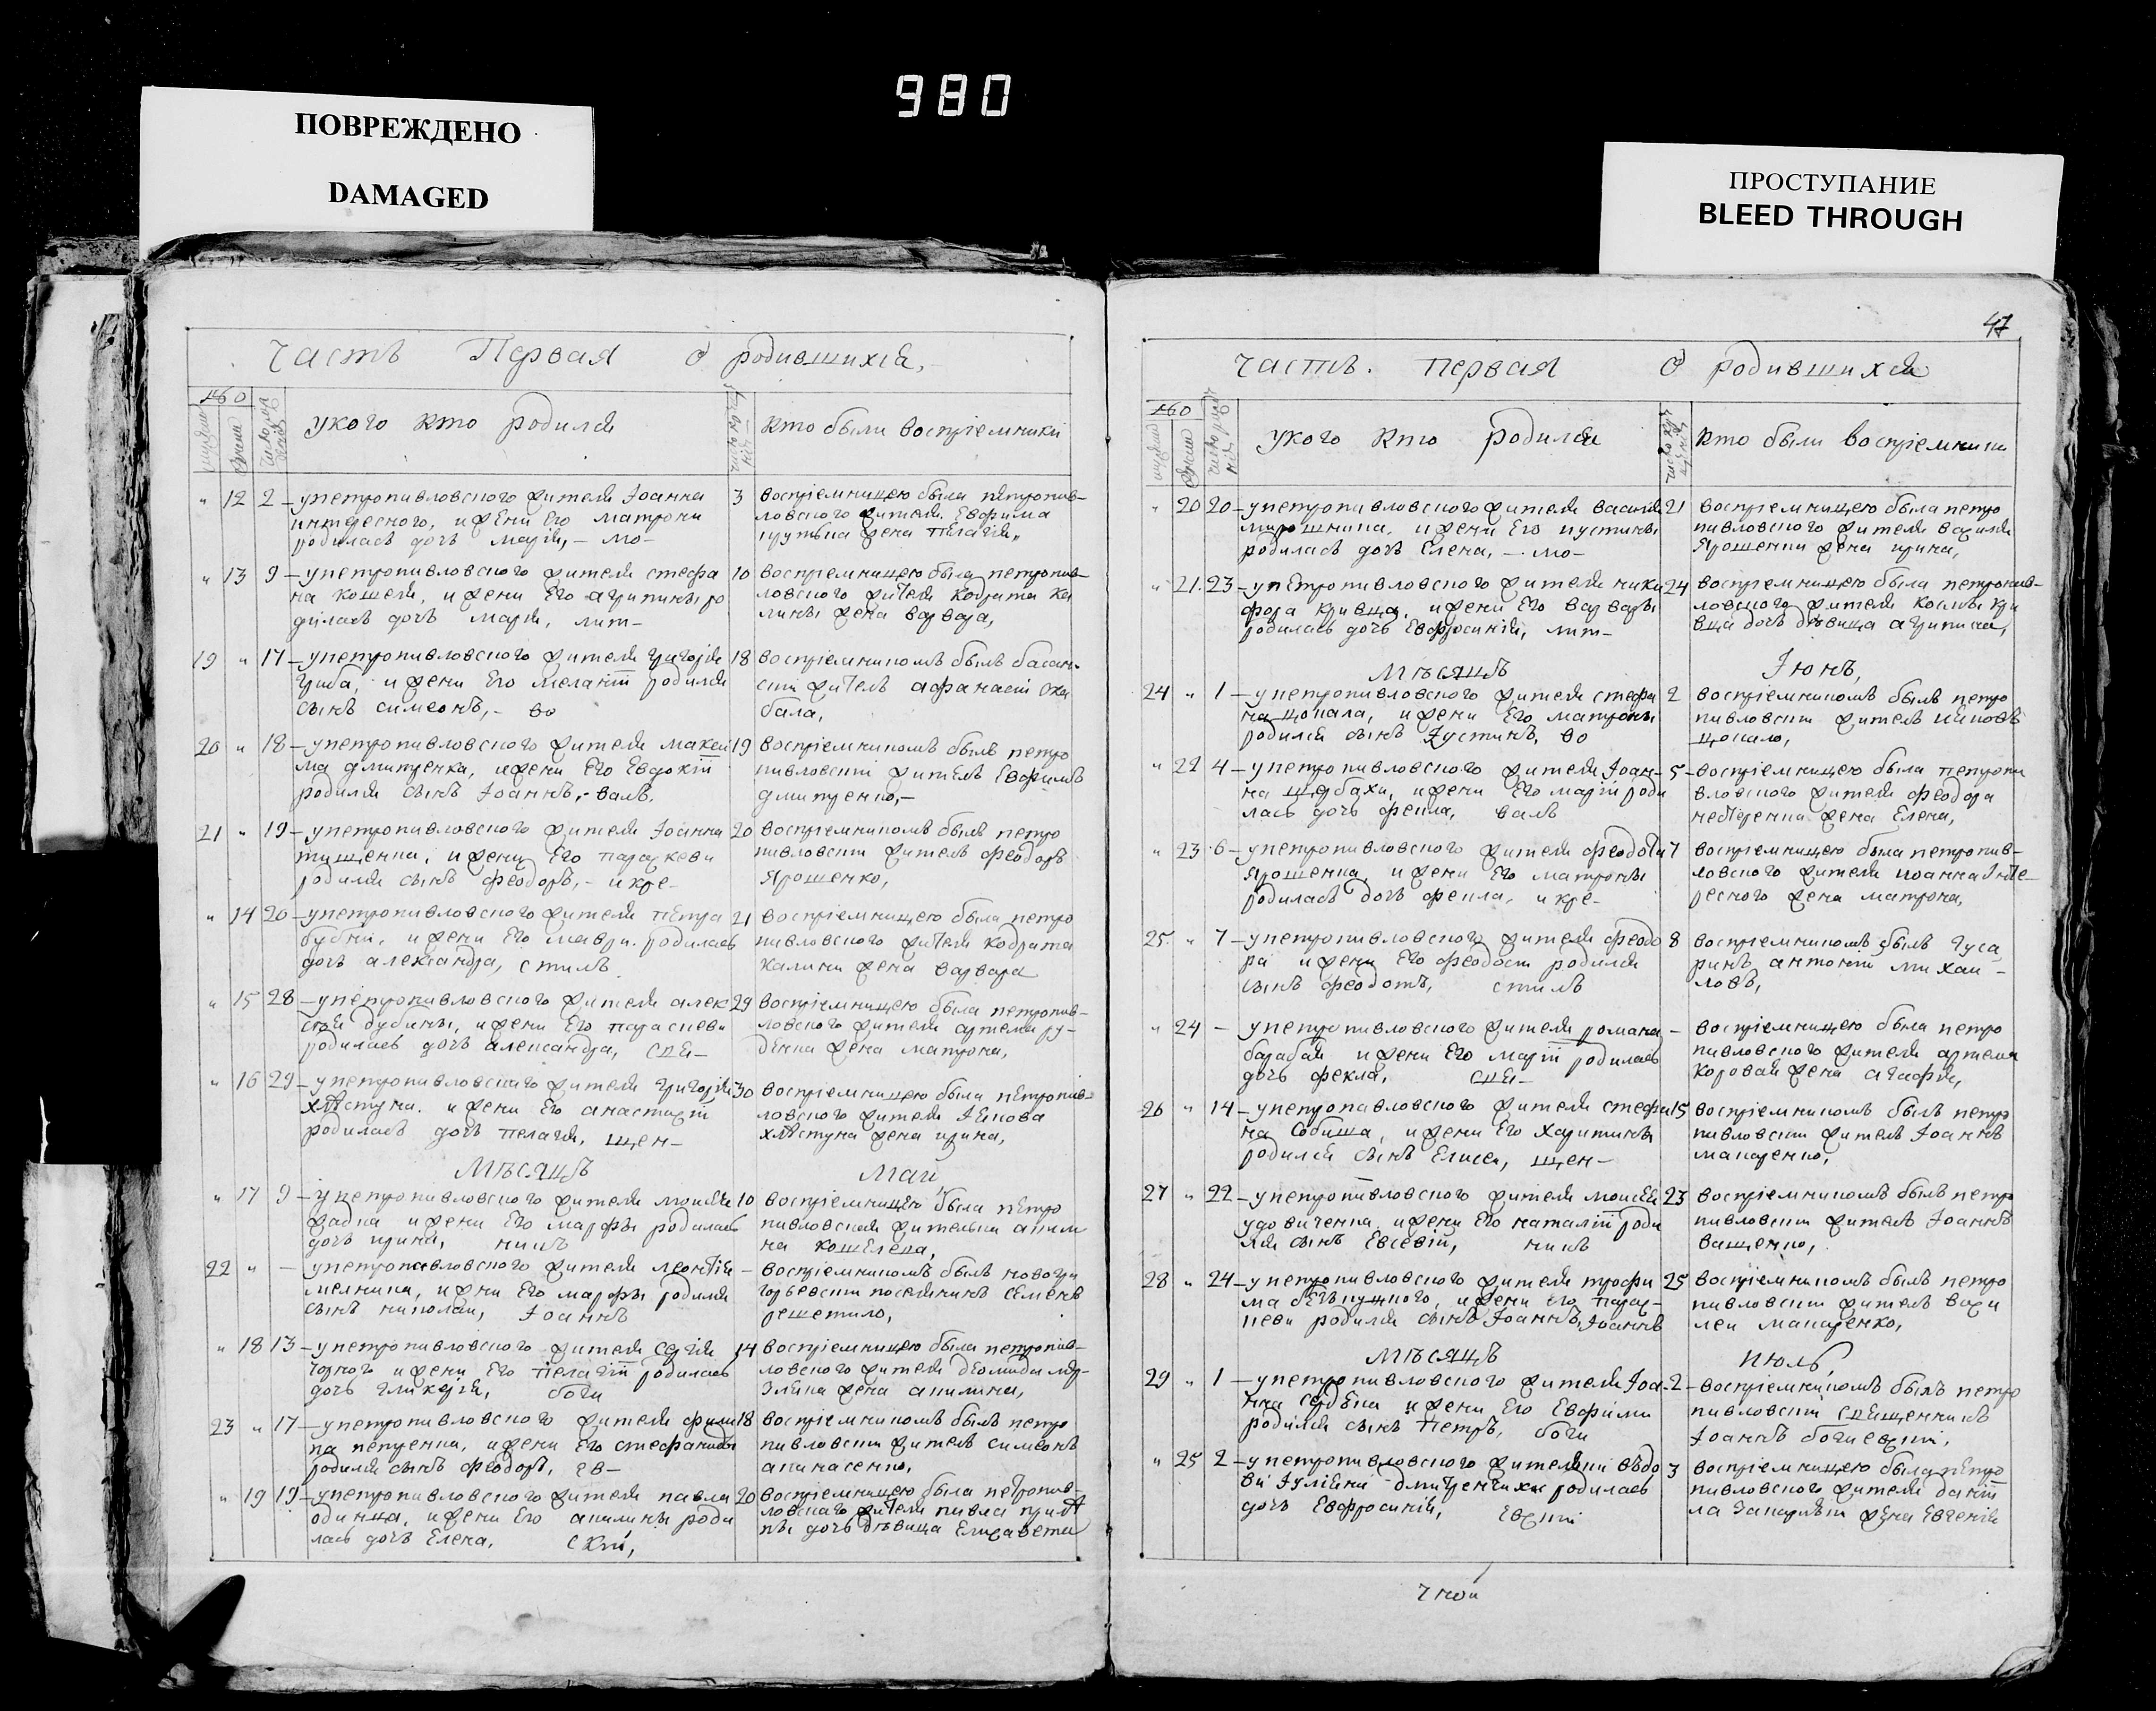 980
ПОВРЕЖДЕНО
DAMAGED
ПРОСТУПАНИЕ
BLEED THROUGH
Часть Первая о родившихся
укого кто родился
кто были воспріемники
" 12 2 – упетропавловского жителя Іоанна
интересного, ижени Его матрони
родилась дочь марія, – мо–
3 воспріемницею была петропав–
ловского жителя Евфима
жена пелагія,
" 13 9 – упетропавловского жителя стефа
на кошеля, ижени Его агрипины ро
дилась дочь марія, лит–
10 воспріемницею была петропав–
ловского жителя кодрата ка
лины жена варвара,
19 " 17 – упетропавловского жителя григорія
гриба, ижени Его меланіи родился
сынъ симеонъ, – во
18 воспріемникомъ былъ басан–
скій житель афанасій ска
бала,
20 " 18 – упетропавловского жителя макси
ма дмитренка, ижени Его Евдокіи
родился сынъ Іоаннъ, – валъ,
19 воспріемникомъ былъ петро
павловскій житель Евфимъ
дмитренко, –
21 " 19 – упетропавловского жителя Іоанна
тищенка, ижени Его параскеви
родился сынъ феодоръ, – икре–
20 воспріемникомъ былъ петро
павловскій житель феодоръ
Ярошенко,
" 14 20 – упетропавловского жителя петра
бубни, ижени Его маври родилась
дочь александра, стилъ
21 воспріемницею была петро
павловского жителя кодрата
калини жена варвара
" 15 28 – упетропавловского жителя алек
сѣя дубины, ижени Его параскеви
родилась дочь александра, сще–
29 воспріемницею была петропав–
ловского жителя артема ру–
денка жена матрона,
" 16 29 – упетропавловского жителя григорія
хлѣстуна. ижени Его анастасіи
родилась дочь пелагія, щен–
30 воспріемницею была петропав–
ловского жителя Іякова
хлѣстуна жена ирина,
Мѣсяцъ Маій
" 17 9 – упетропавловского жителя моисея
ижени Его марфы родилась
дочь ирина, никъ
10 воспріемницею была петро
павловская жителька акили
на кошелева,
22 " – упетропавловского жителя леонтія
мелника, ижени Его марфы родился
сынъ николай, Іоаннъ
– воспріемникомъ былъ новогри
горьевскій поселянинъ семенъ
решетило,
" 18 13 – упетропавловского жителя сергія
чорного ижени Его пелагіи родилась
дочь гликерія, боги
14 воспріемницею была петропав–
ловского жителя діомида мер–
зляка жена акилина,
23 " 17 – упетропавловского жителя фили
па петренка, ижени Его стефаниды
родился сынъ феодоръ, ев–
18 воспріемникомъ былъ петро
павловскій житель симеонъ
апанасенко,
" 19 19 – упетропавловского жителя павла
одинца, ижени Его акилины роди
лась дочь Елена, скій,
20 воспріемницею была петропав–
ловского жителя павла
дочь дѣвица Елисавета
47
Часть. первая О родившихся
укого кто родился
кто были воспріемники
" 20 20 – упетропавловского жителя василія
мирошника, ижени Его иустины
родилась дочь Елена, – мо–
21 воспріемницею была петро
павловского жителя василія
Ярошенка жена ирина,
" 21. 23 – упетропавловского жителя ники
фора кривца, ижени Его варвары
родилась дочь Евфросинія, лит–
24 воспріемницею была петропав–
ловского жителя космы кри
вца дочь дѣвица агрипина,
Мѣсяцъ Іюнь,
24 " 1 – упетропавловского жителя стефа
на цокала, ижени Его матроны
родился сынъ Іустинъ, во
2 воспріемникомъ былъ петро
павловскій житель
цокало,
" 22 4 – упетропавловского жителя Іоан–
на щербахи, ижени Его маріи роди
лась дочь фекла, валъ
5 – воспріемницею была петропа
вловского жителя феодора
нестеренка жена Елена,
" 23 6 – упетропавловского жителя феодота
Ярошенка ижени Его матроны
родилась дочь фекла, икре–
7 воспріемницею была петропав–
ловского жителя иоанна Інте–
ресного жена матрона,
25. " 7 – упетропавловского жителя феодо
ра ижени Его феодосіи родился
сынъ феодотъ, стилъ
8 воспріемникомъ былъ гуса
ринъ антоній михаи–
ловъ,
" 24 – упетропавловского жителя романа
барабаи ижени Его маріи родилась
дочь фекла, сще–
– воспріемницею была петро
павловского жителя артема
коровая жена агафія,
26 " 14 – упетропавловского жителя стефа
на собиша, ижени Его харитины
родился сынъ Елисей, щен–
15 воспріемникомъ былъ петро
павловскій житель Іоаннъ
макаренко,
27 " 22 – упетропавловского жителя моисея
удовиченка ижени Его наталіи роди
лся сынъ Евсевій, никъ
23 воспріемникомъ былъ петро
павловскій житель Іоаннъ
ващенко,
28 " 24 – упетропавловского жителя трофи
ма ижени Его парас–
кеви родился сынъ Іоаннъ, Іоаннъ
25 воспріемникомъ былъ петро
павловскій житель васи
лей макаренко,
Мѣсяцъ Июль,
29 " 1 – упетропавловского жителя Іоа–
нна сердека ижени Его Евфиміи
родился сынъ петръ, боги
2 – воспріемникомъ былъ петро
павловскій священникъ
Іоаннъ богиевскій,
" 25 2 – упетропавловского жительки вдо
ви Іуліяни дмитренчихи родилась
дочь Евфросинія, евскій
3 воспріемницею была петро
павловского жителя даніи
ла жена Евгенія